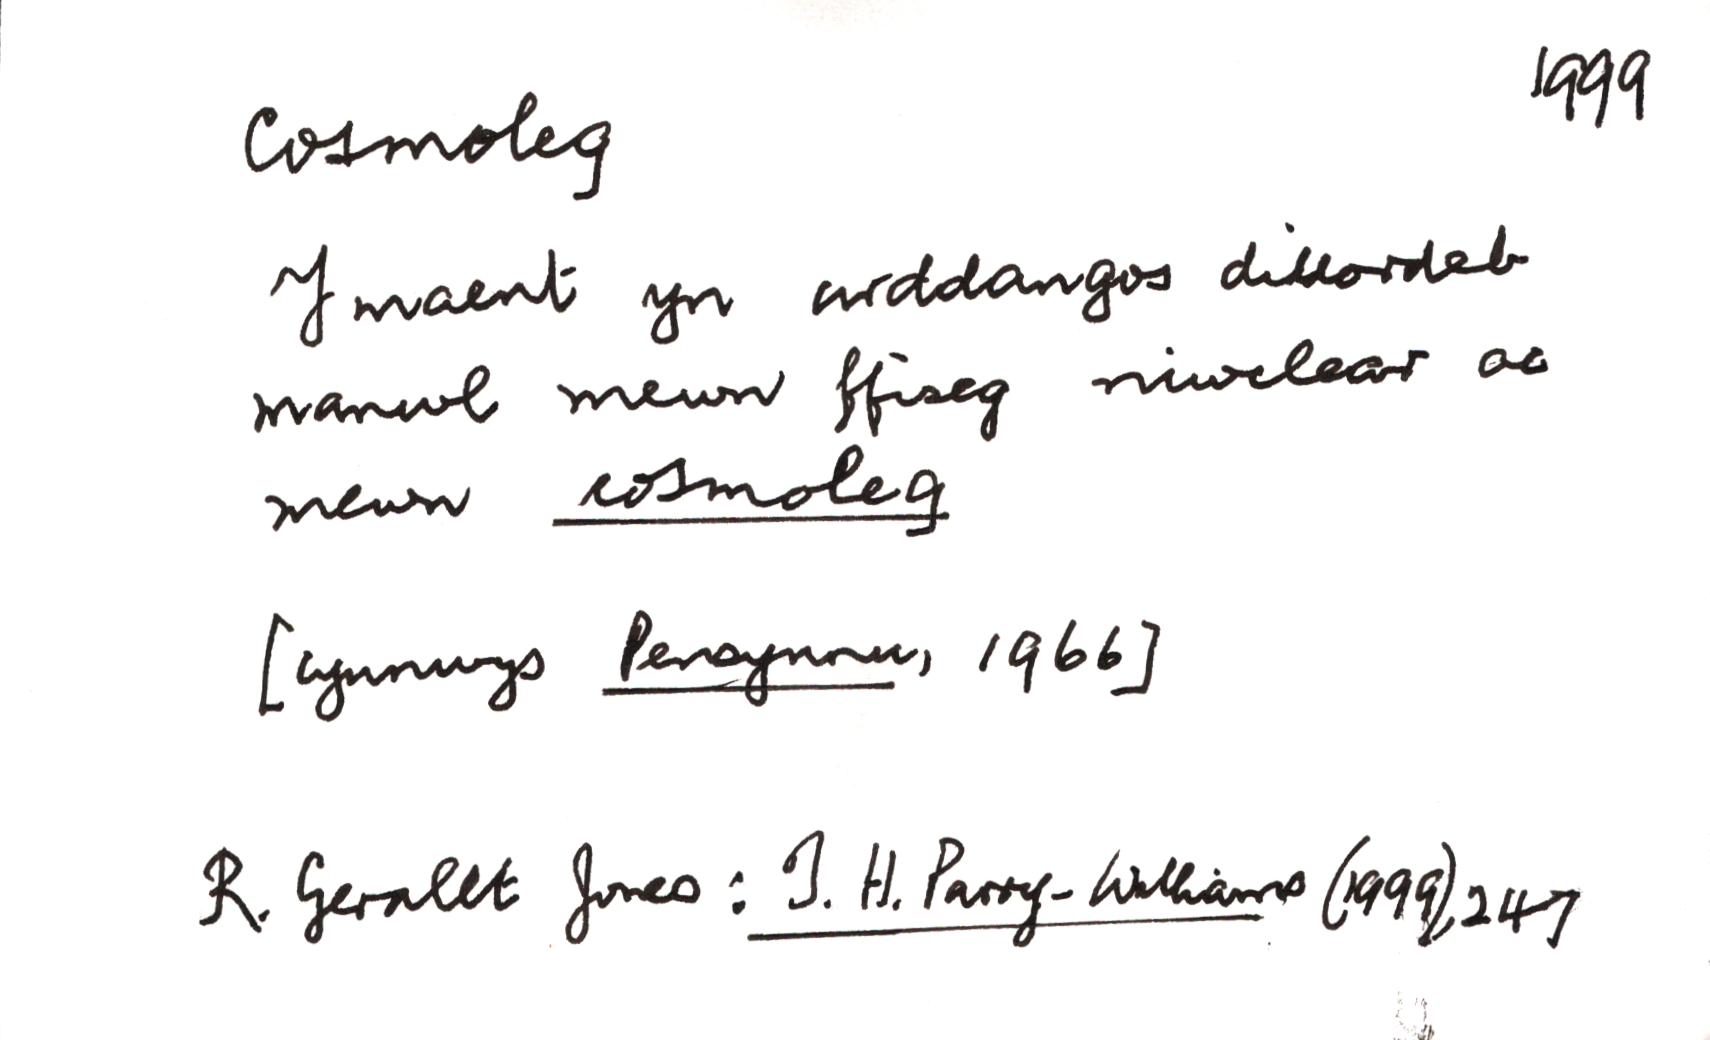 1999
Cosmoleg
Y maent yn arddangos diddordeb
manwl mewn ffiseg niwclear ac
mewn cosmoleg
[cynnwys Pensynnu, 1966]
R. Gerallt Jones: T. H. Parry-Williams (1999), 247